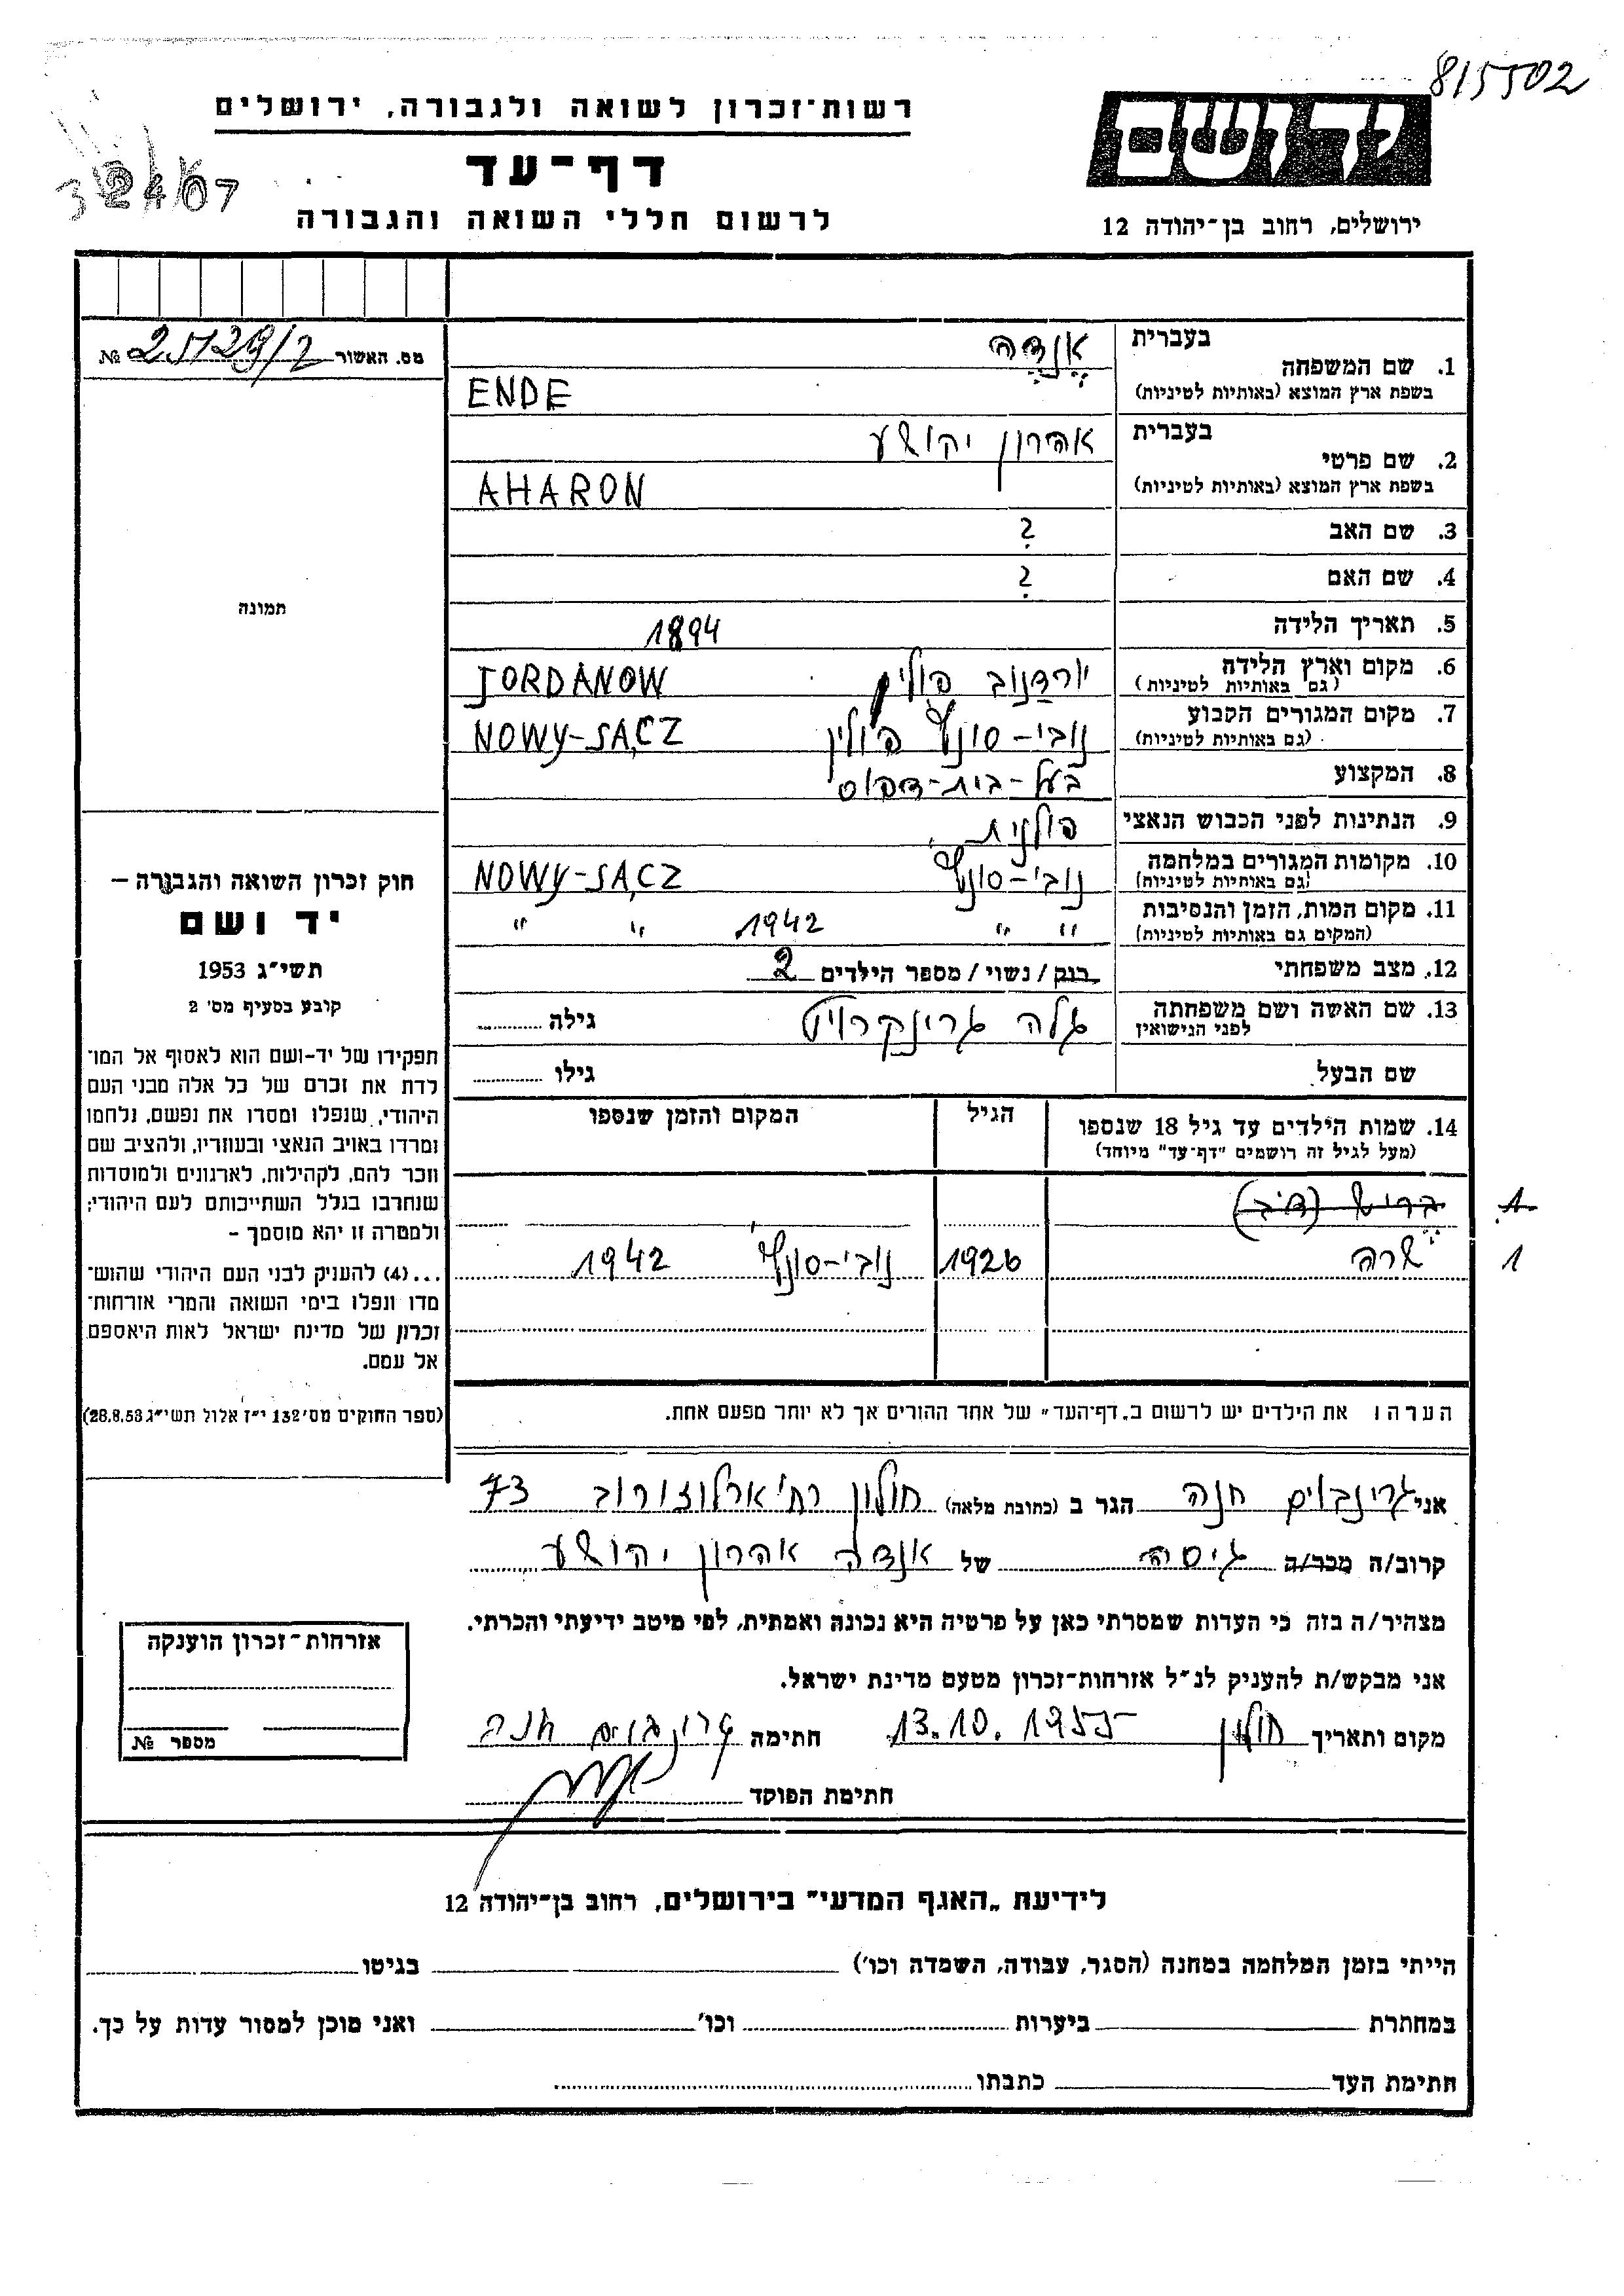 815502
רשות־זכרון לשואה ולגבורה, ירושלים
יד ושם
דף־עד
32407
לרשום חללי השואה והגבורה
ירושלים, רחוב בן־יהודה 12
1. שם המשפחה
בעברית אֶנְדֶה
בשפת ארץ המוצא (באותיות לטיניות) ENDE
מס. האשור № 25129/2
2. שם פרטי
בעברית אהרון יהושע
בשפת ארץ המוצא (באותיות לטיניות) AHARON
3. שם האב ?
4. שם האם ?
5. תאריך הלידה 1894
6. מקום וארץ הלידה (גם באותיות לטיניות) יורדנוב פולין JORDANOW
7. מקום המגורים הקבוע (גם באותיות לטיניות) נובי-סונץ פולין NOWY-SĄCZ
8. המקצוע בעל-בית-דפוס
9. הנתינות לפני הכבוש הנאצי פולנית
10. מקומות המגורים במלחמה (גם באותיות לטיניות) נובי-סונץ NOWY-SĄCZ
11. מקום המות, הזמן והנסיבות (המקום גם באותיות לטיניות) " " 1942 " "
12. מצב משפחתי רוק / נשוי / מספר הילדים 2
13. שם האשה ושם משפחתה לפני הנישואין גלה גרינקרויט גילה
שם הבעל גילו
תמונה
חוק זכרון השואה והגבורה –
יד ושם
תשי״ג 1953
קובע בסעיף מס' 2
תפקידו של יד-ושם הוא לאסוף אל המו־
לדת את זכרם של כל אלה מבני העם
היהודי, שנפלו ומסרו את נפשם, נלחמו
ומרדו באויב הנאצי ובעוזריו, ולהציב שם
וזכר להם, לקהילות, לארגונים ולמוסדות
שנחרבו בגלל השתייכותם לעם היהודי;
ולמטרה זו יהא מוסמך –
...(4) להעניק לבני העם היהודי שהוש־
מדו ונפלו בימי השואה והמרי אזרחות־
זכרון של מדינת ישראל לאות היאספם
אל עמם.
(ספר החוקים מס' 132 י״ז אלול תשי״ג 28.8.53)
14. שמות הילדים עד גיל 18 שנספו הגיל המקום והזמן שנספו
(מעל לגיל זה רושמים "דף-עד" מיוחד)
1 שרה 1926 נובי-סונץ 1942
הערה: את הילדים יש לרשום ב„דף־העד״ של אחד ההורים אך לא יותר מפעם אחת.
אני גרינבוים חנה הגר ב (כתובת מלאה) חולון רח' ארלוזורוב 73
קרוב/ה מכר/ה גיסה של אנדה אהרון יהושע
מצהיר/ה בזה כי העדות שמסרתי כאן על פרטיה היא נכונה ואמתית, לפי מיטב ידיעתי והכרתי.
אני מבקש/ת להעניק לנ״ל אזרחות־זכרון מטעם מדינת ישראל.
מקום ותאריך חולון 13.10.1955 חתימה גרינבוים חנה
חתימת הפוקד
אזרחות־זכרון הוענקה
מספר №
לידיעת „האגף המדעי״ בירושלים, רחוב בן־יהודה 12
הייתי בזמן המלחמה במחנה (הסגר, עבודה, השמדה וכו') בגיטו
במחתרת ביערות וכו' ואני מוכן למסור עדות על כך.
חתימת העד כתבתו